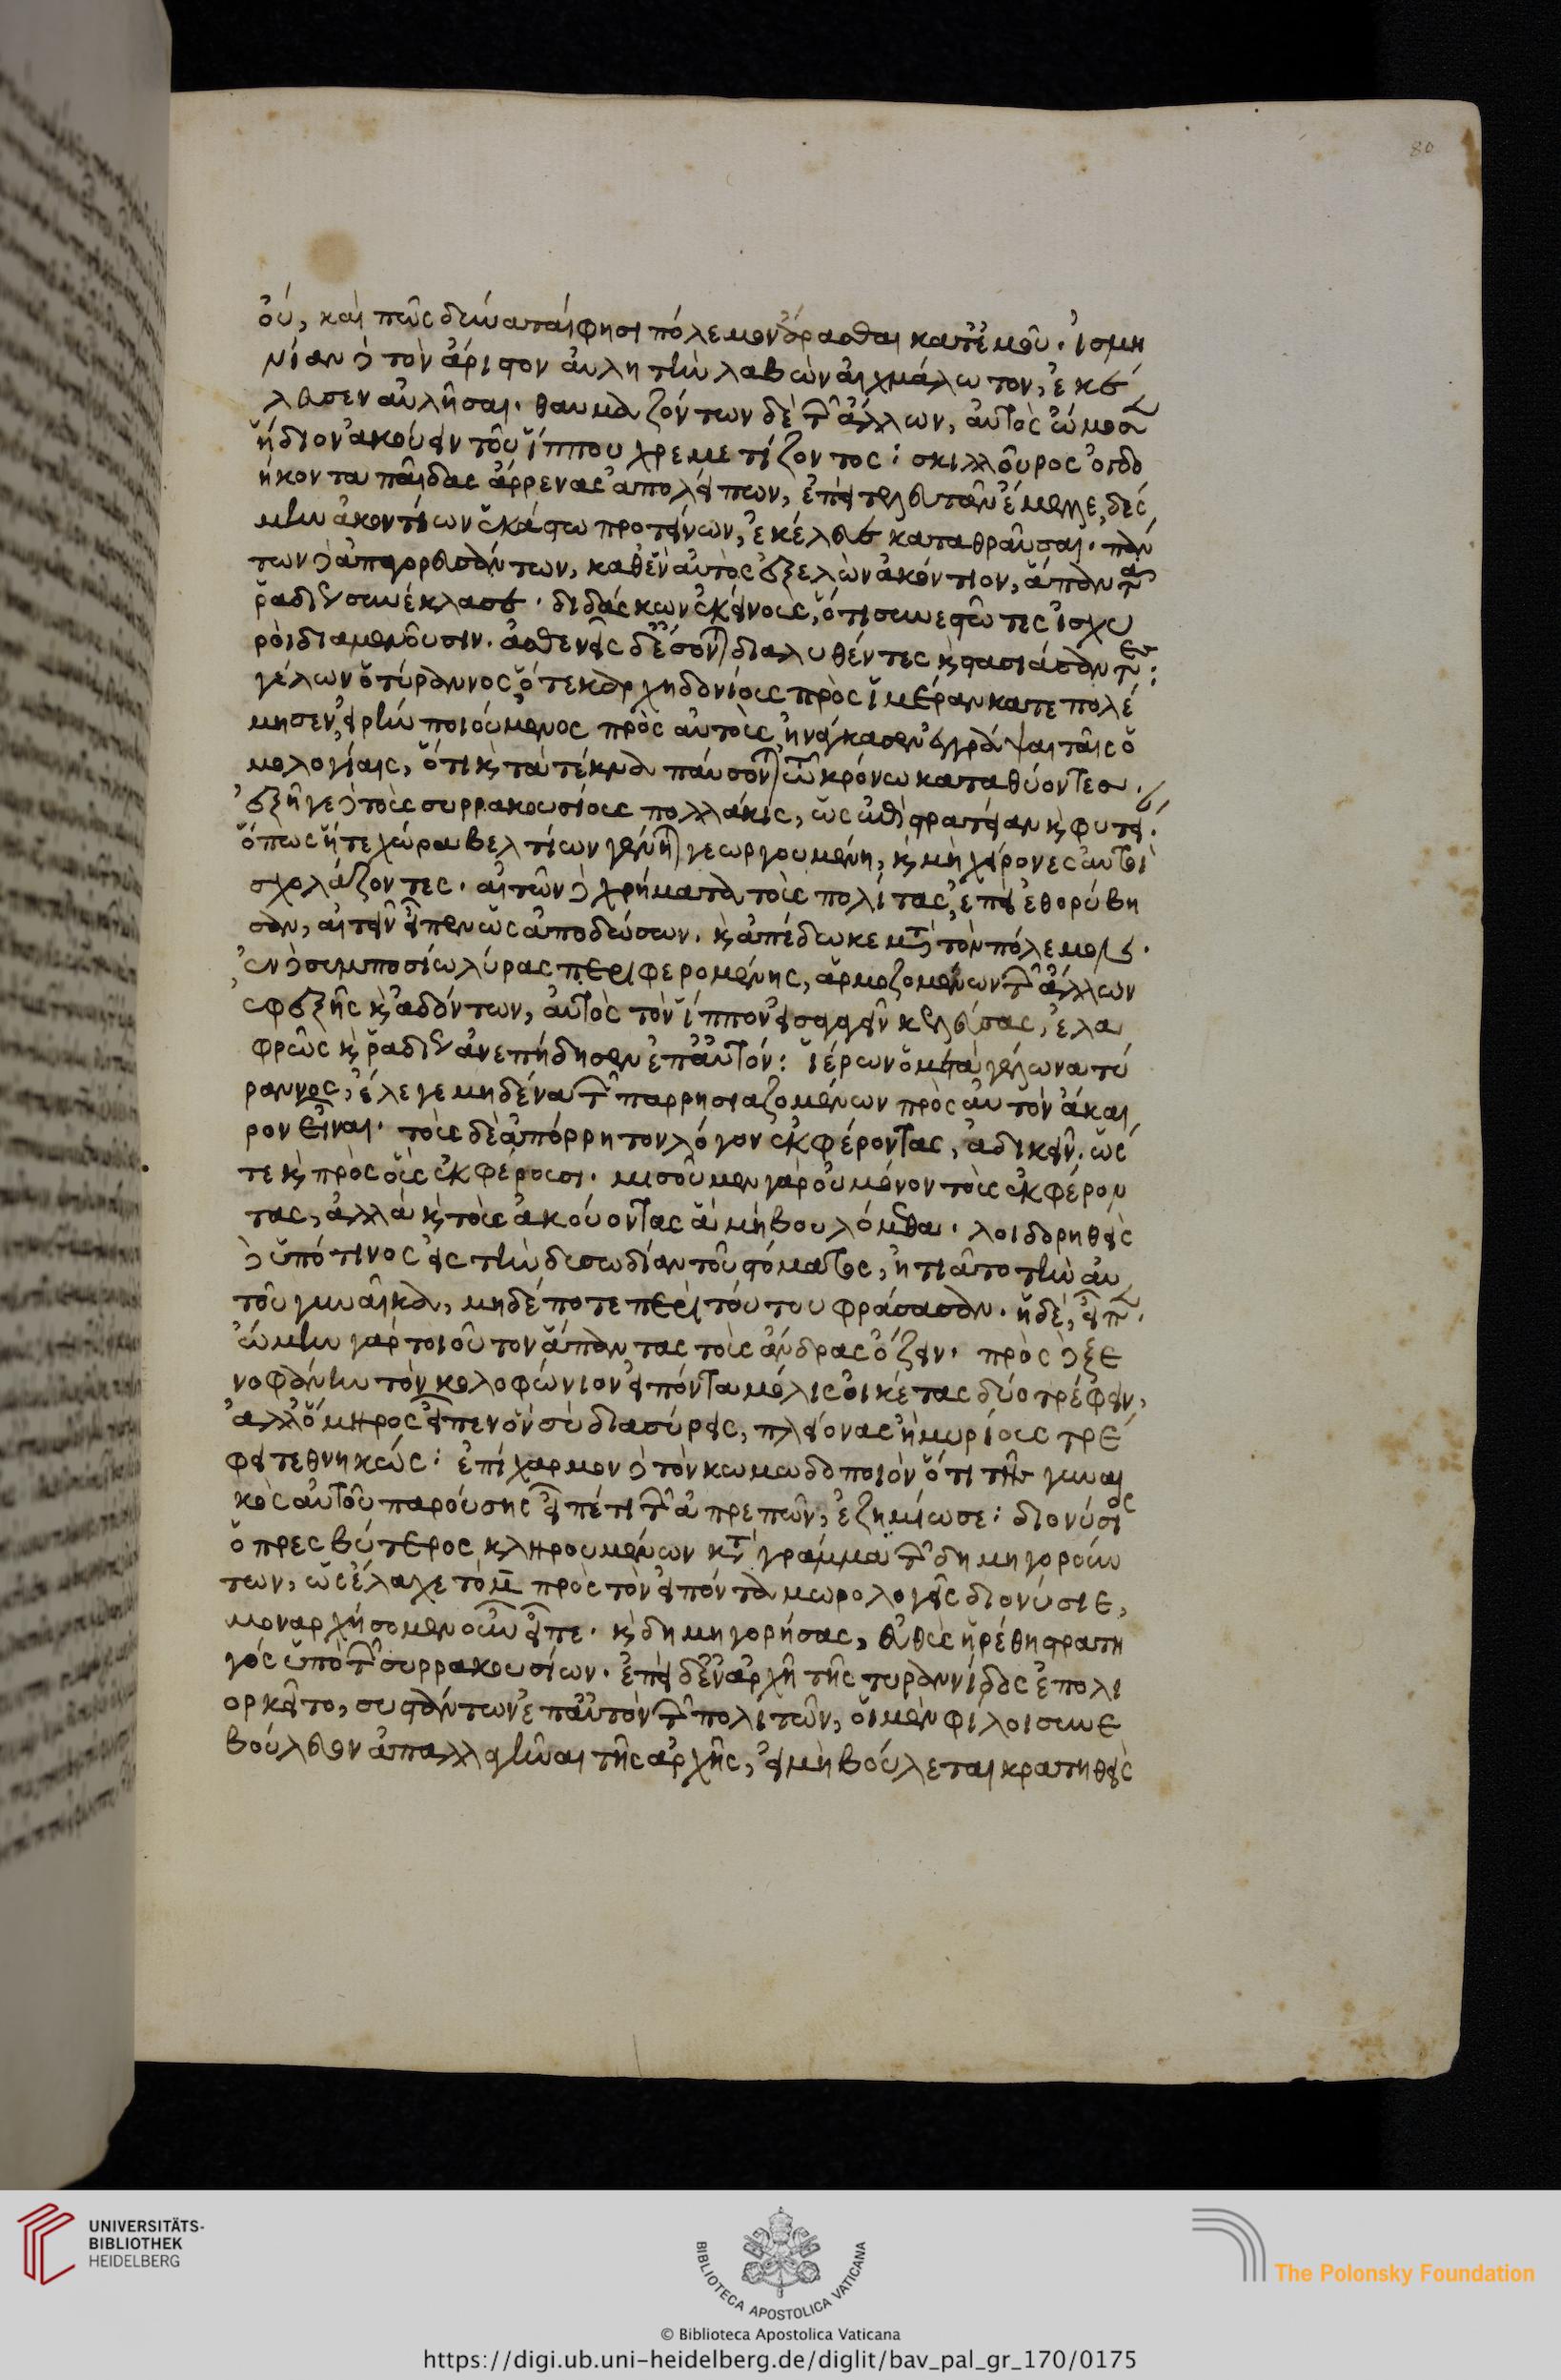 οὐ, καὶ πῶς δύναται φησι πόλεμον ὄρασθαι κατ' ἐμοῦ. ἰσμη
νίαν δὲ τὸν ἄριστον αὐλητὴν λαβὼν αἰχμάλωτον, ἐκέ
λευσεν αὐλῆσαι. θαυμαζόντων δὲ τῶν ἄλλων, αὐτὸς ὤμοσεν
ἥδιον ἀκούειν τοῦ ἵππου χρεμετίζοντος: σκιλλοῦρος ὀγδο
ήκοντα παῖδας ἄρρενας ἀπολείπων, ἐπεὶ τελευτᾶν ἔμελλε, δές
μην ἀκοντίων ἑκάστω προτείνων, ἐκέλευε καταθραῦσαι. πάν
των δὲ ἀπαγορευσάντων, καθ' ἓν αὐτὸς ἐξελὼν ἀκόντιον, ἅπαντα
ῥαδίως συνέκλασε. διδάσκων ἐκείνους, ὅτι συνεστῶτες ἰσχυ
ροὶ διαμενοῦσιν. ἀσθενεῖς δὲ ἔσονται διαλυθέντες καὶ στασιάσαντες:
γέλων ὁ τύραννος, ὅτε καρχηδονίους πρὸς ἱμέραν κατεπολέ
μησεν, εἰρήνην ποιούμενος πρὸς αὐτοὺς, ἠνάγκασεν ἐγγράψαι ταῖς ὁ
μολογίαις, ὅτι καὶ τὰ τέκνα παύσονται τῶ κρόνω καταθύοντες.
ἐξῆγε δὲ τοὺς συρρακουσίους πολλάκις, ὡς ἐπὶ στρατείαν καὶ φυτεί.
ὅπως ἥ τε χώρα βελτίων γένηται γεωργουμένη, καὶ μὴ χείρονες αὐτοὶ
σχολάζοντες. αἰτῶν δὲ χρήματα τοὺς πολίτας, ἐπεὶ ἐθορύβη
σαν, αἰτεῖν εἶπεν ὡς ἀποδώσων. καὶ ἀπέδωκε μετὰ τὸν πόλεμον.
ἐν δὲ συμποσίω λύρας περιφερομένης, ἁρμοζομένων τῶν ἄλλων
ἐφεξῆς καὶ ἀδόντων, αὐτὸς τὸν ἵππον εἰσαγαγεῖν κελεύσας, ἐλα
φρῶς καὶ ῥαδίως ἀνεπήδησεν ἐπ' αὐτόν: ἱέρων ὁ μετὰ γέλωνα τύ
ραννος, ἔλεγε μηδένα τῶν παρρησιαζομένων πρὸς αὐτὸν ἄκαι
ρον εἶναι. τοὺς δὲ ἀπόρρητον λόγον ἐκφέροντας, ἀδικεῖν. ὥς
τε καὶ πρὸς οὓς ἐκφέρουσι. μισοῦμεν γὰρ οὐ μόνον τοὺς ἐκφέρον
τας, ἀλλὰ καὶ τοὺς ἀκούοντας ἃ μὴ βουλόμεθα. λοιδορηθεὶς
δὲ ὑπό τινος εἰς τὴν δυσωδίαν τοῦ στόματος, ἠτιᾶτο τὴν αὐ
τοῦ γυναῖκα, μηδέποτε περὶ τούτου φράσασαν. ἡ δέ, εἶπεν.
ὤμην γὰρ τοιοῦτον ἅπαντας τοὺς ἄνδρας ὄζειν. πρὸς δὲ ξε
νοφάνην τὸν κολοφώνιον εἰπόντα μόλις οἰκέτας δύο τρέφειν,
ἀλλ' ὅμηρος εἶπεν ὃν σὺ διασύρεις, πλείονας ἢ μυρίους τρέ
φει τεθνηκώς: ἐπίχαρμον δὲ τὸν κωμωδοποιὸν ὅτι τῆς γυναι
κὸς αὐτοῦ παρούσης εἶπέ τι τῶν ἀπρεπῶν, ἐζημίωσε: διονύσιος
ὁ πρεσβύτερος κληρουμένων κατὰ γράμμα τῶν δημηγορούν
των, ὡς ἔλαχε τὸ μ̅ πρὸς τὸν εἰπόντα μωρολογεῖς διονύσιε,
μοναρχήσω μὲν οὖν εἶπε. καὶ δημηγορήσας, εὐθὺς ἡρέθη στρατη
γὸς ὑπὸ τῶν συρρακουσίων. ἐπεὶ δὲ ἐν ἀρχῆ τῆς τυραννίδος ἐπολι
ορκεῖτο, συστάντων ἐπ' αὐτὸν τῶν πολιτῶν, οἱ μὲν φίλοι συνε
βούλευον ἀπαλλαγῆναι τῆς ἀρχῆς, εἰ μὴ βούλεται κρατηθεὶς
80
UNIVERSITÄTS-
BIBLIOTHEK
HEIDELBERG
BIBLIOTECA APOSTOLICA VATICANA
The Polonsky Foundation
© Biblioteca Apostolica Vaticana
https://digi.ub.uni-heidelberg.de/diglit/bav_pal_gr_170/0175